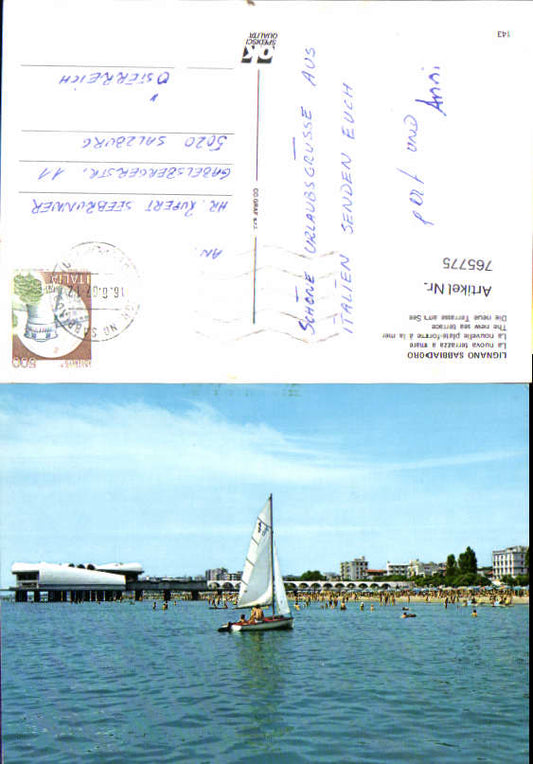 LIGNANO SABBIADORO
La nuova terrazza a mare
La nouvelle plate-forme à la mer
The new sea terrace
Die neue Terrasse am See
Artikel Nr.
765775
SCHÖNE URLAUBSGRÜSSE AUS
ITALIEN SENDEN EUCH
UND ANNI
AN.
HR. RUPERT SEEBRUNNER
GABELSBERGERSTR. 11
5020 SALZBURG
ÖSTERREICH
ITALIA
500
SPEDISCI
QUALITA'
143